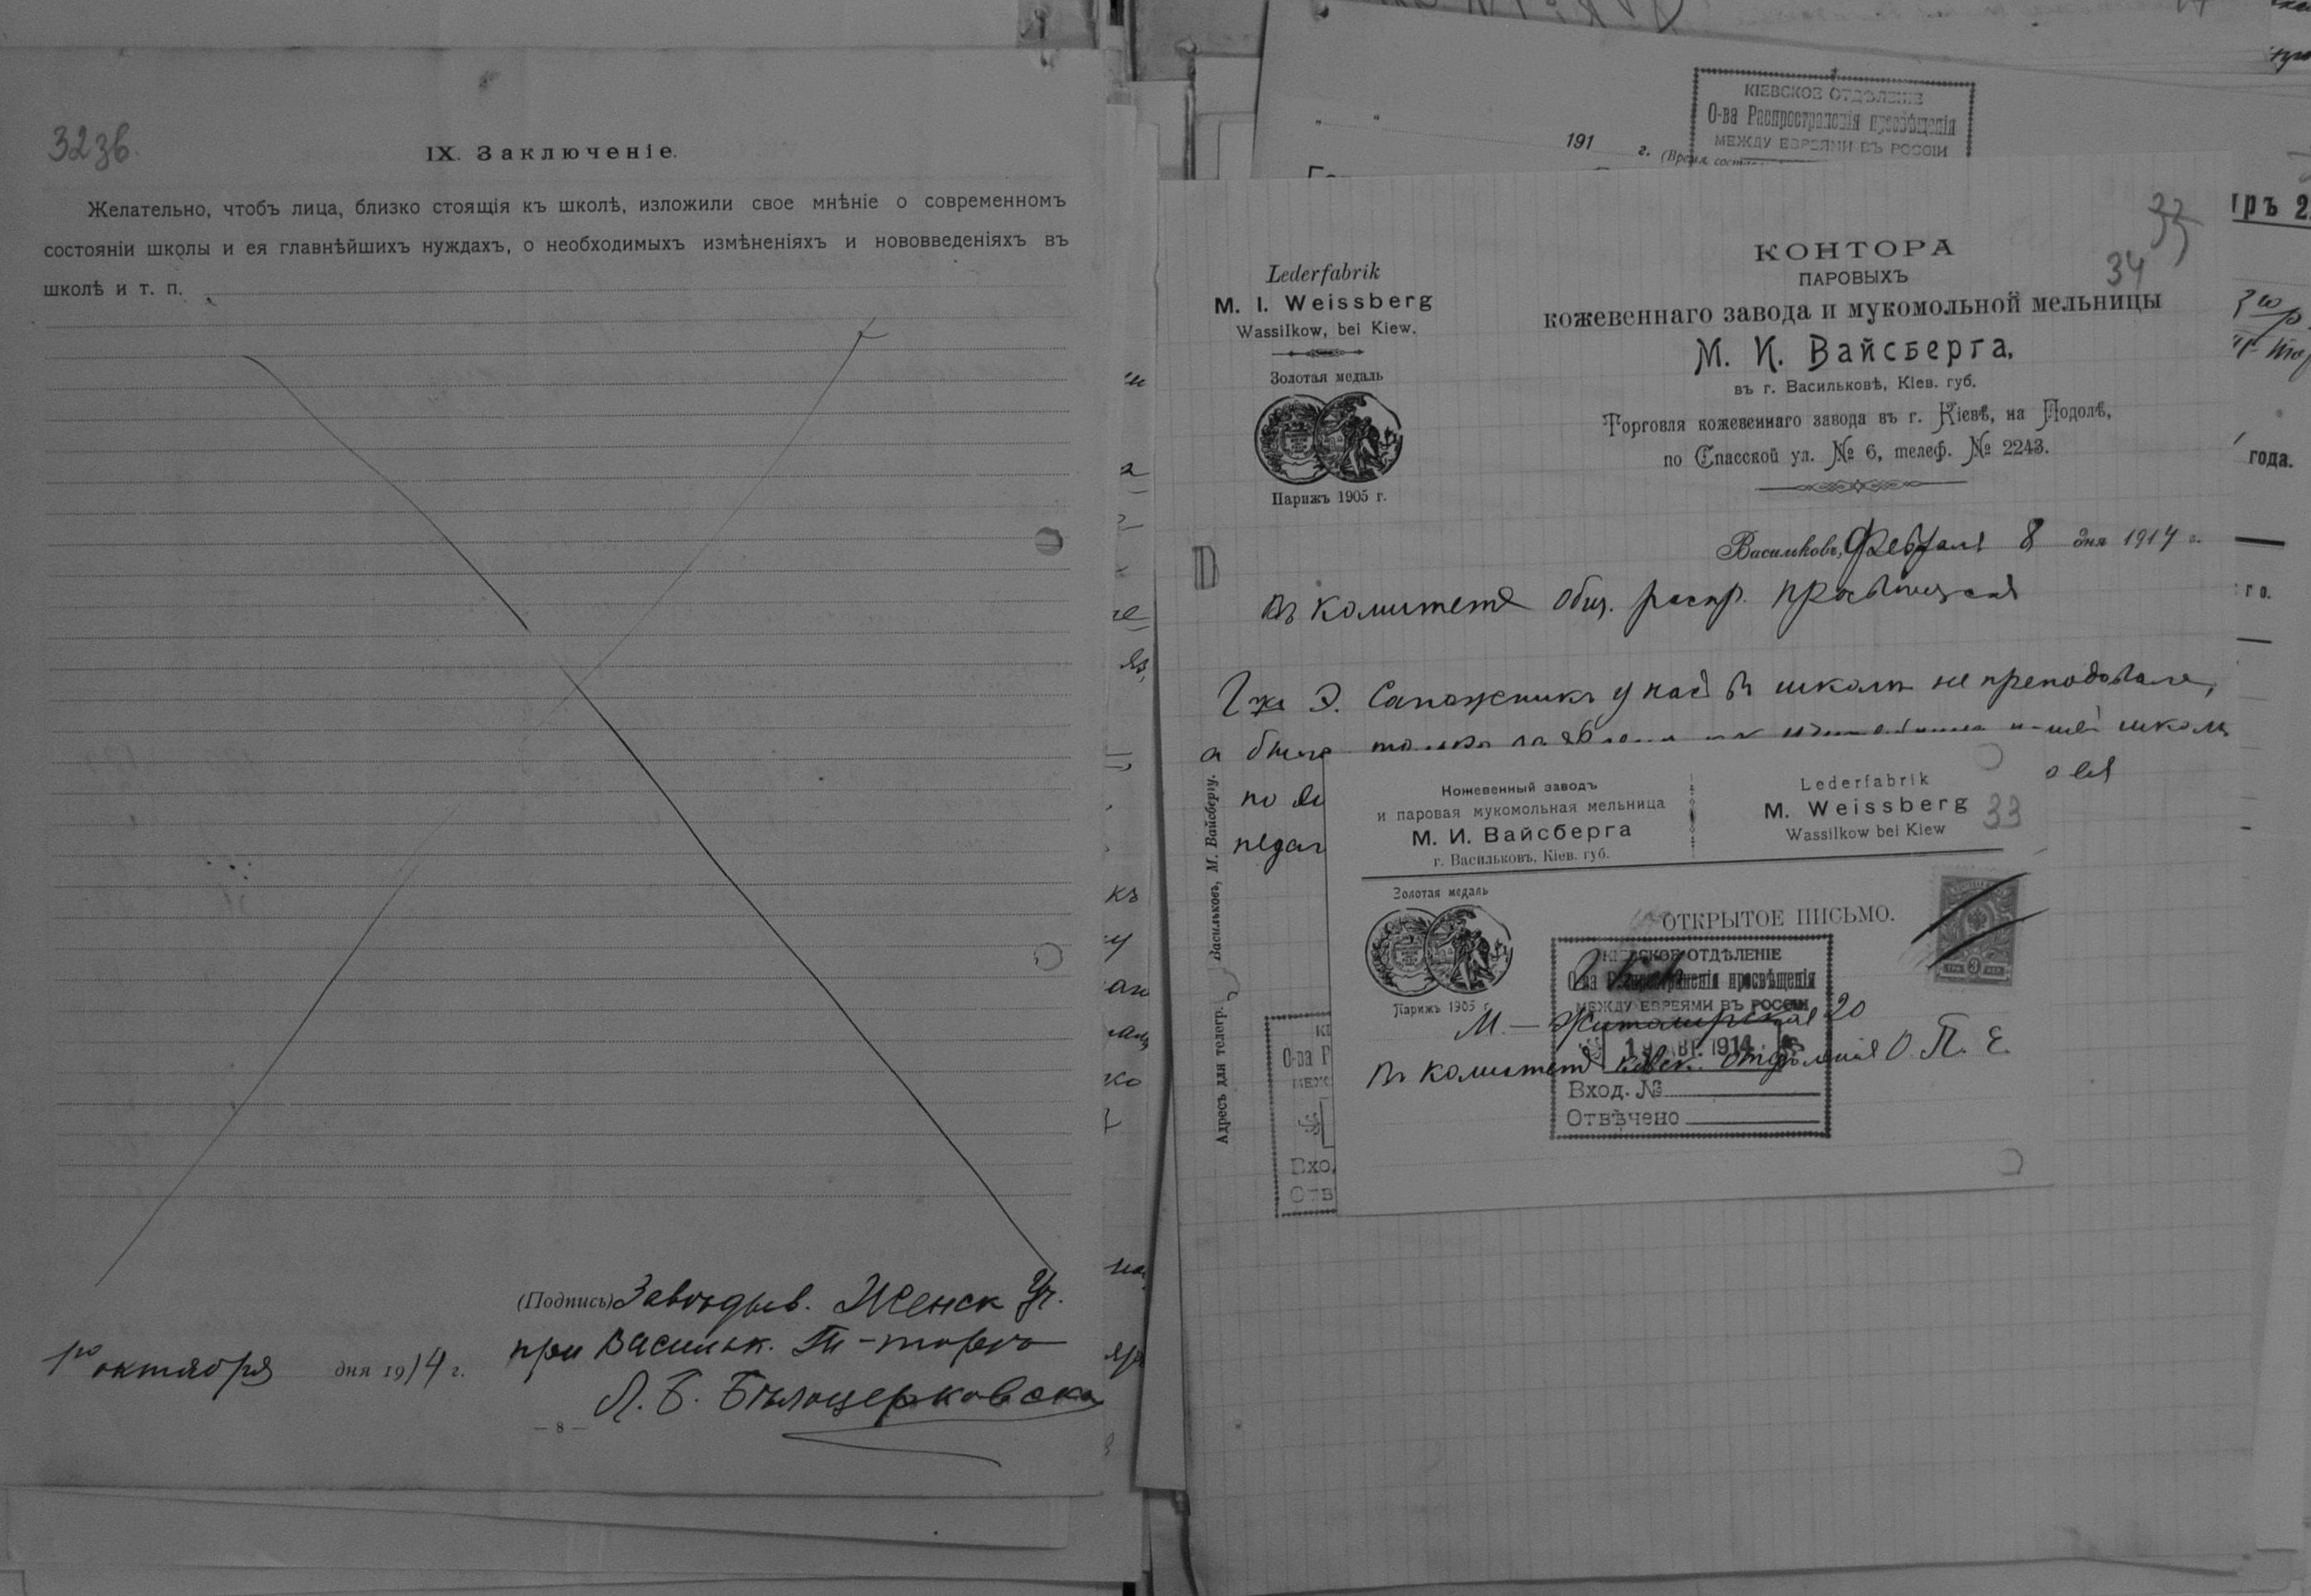 32 зв.
IX. Заключеніе.
Желательно, чтобъ лица, близко стоящія къ школѣ, изложили свое мнѣніе о современномъ
состояніи школы и ея главнѣйшихъ нуждахъ, о необходимыхъ измѣненіяхъ и нововведеніяхъ въ
школѣ и т. п.
(Подпись) Завѣдыв. Женск Уч.
при Васильк. Т-торго
10 октября дня 1914 г.
Л. Б. Бѣлоцерковска
— 8 —
КІЕВСКОЕ ОТДѢЛЕНІЕ
О-ва Распространенія просвѣщенія
МЕЖДУ ЕВРЕЯМИ ВЪ РОССІИ
191 г.
33
34
Lederfabrik
M. I. Weissberg
Wassilkow, bei Kiew.
Золотая медаль
Парижъ 1905 г.
КОНТОРА
ПАРОВЫХЪ
кожевеннаго завода и мукомольной мельницы
М. И. Вайсберга,
въ г. Васильковѣ, Кіев. губ.
Торговля кожевеннаго завода въ г. Кіевѣ, на Подолѣ,
по Спасской ул. № 6, телеф. № 2243.
Васильковъ, Февраля 8 дня 1914 г.
Въ Комитетъ общ. распр. просвѣщенія
Г-жа Э. Сапожникъ у насъ въ школѣ не преподавала,
а была только школы
по
педаг
Адресъ для телегр. Васильковъ, М. Вайсбергу.
Кожевенный заводъ
и паровая мукомольная мельница
М. И. Вайсберга
г. Васильковъ, Кіев. губ.
Lederfabrik
M. Weissberg
Wassilkow bei Kiew
33
Золотая медаль
Парижъ 1905 г.
ОТКРЫТОЕ ПИСЬМО.
КІЕВСКОЕ ОТДѢЛЕНІЕ
О-ва Распространенія просвѣщенія
МЕЖДУ ЕВРЕЯМИ ВЪ РОССІИ
М.-Житомирская 20
1914
Въ комитетъ Кіевск. отдѣленія О. П. Е.
Вход. №
Отвѣчено
года.